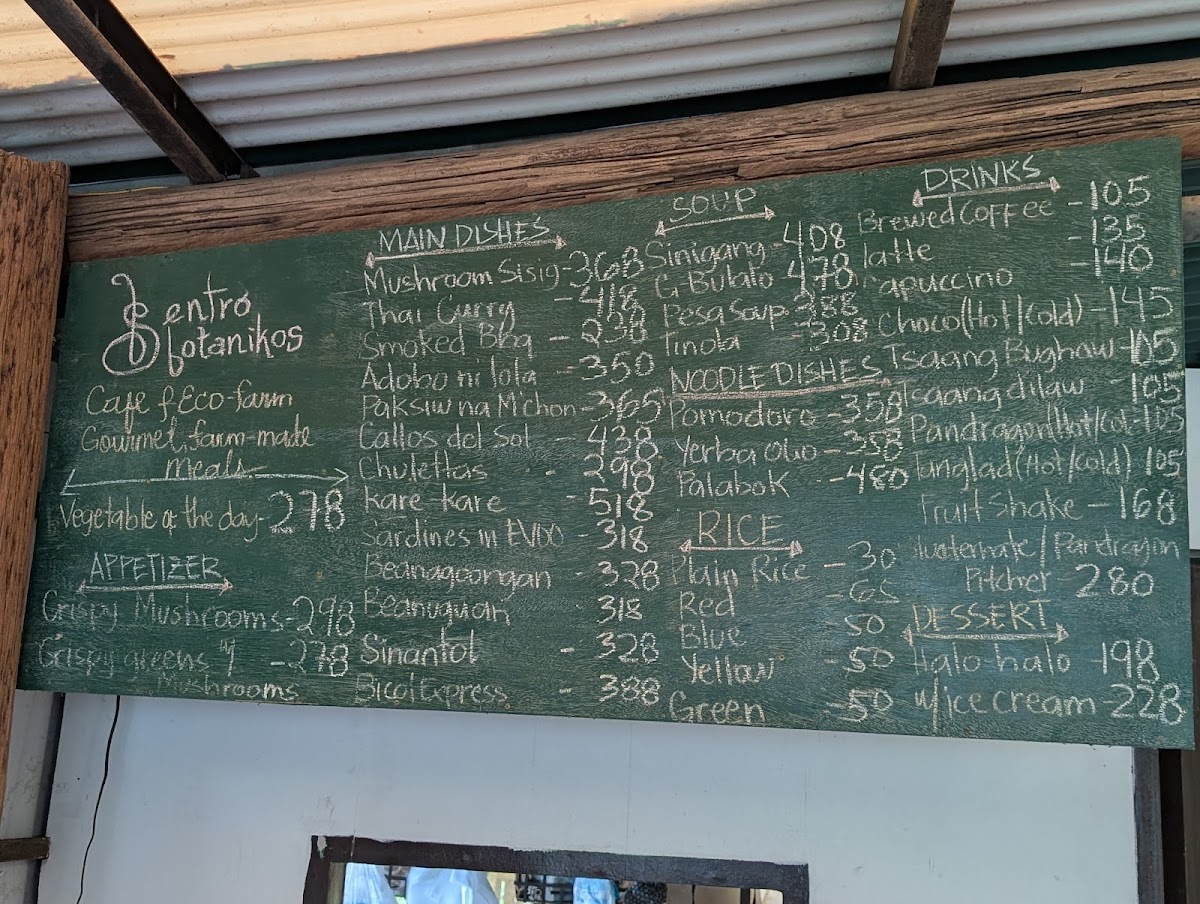 Sentro
Botanikos
Cafe & Eco-farm
Gourmet, farm-made
meals
Vegetable of the day - 278
APPETIZER
Crispy Mushrooms - 298
Crispy greens w/ - 278
Mushrooms
MAIN DISHES
Mushroom Sisig - 368
Thai Curry - 418
Smoked Bbq - 238
Adobo ni lola - 350
Paksiw na M'chon - 365
Callos del Sol - 438
Chulettas - 298
Kare-kare - 518
Sardines in EVOO - 318
Beanagoongan - 328
Beanuguan 318
Sinantol - 328
Bicol Express - 388
SOUP
Sinigang - 408
G Bulalo 478
Pesa Soup 358
Tinola - 308
NOODLE DISHES
Pomodoro - 358
Yerba Olio - 358
Palabok - 480
RICE
Plain Rice - 30
Red - 65
Blue 50
Yellow - 50
Green - 50
DRINKS
Brewed Coffee - 105
latte - 135
Capuccino - 140
Choco (Hot/cold) - 145
Tsaang Bughaw - 105
Tsaang dilaw - 105
Pandragon (Hot/Col - 105
Tanglad (Hot/Cold) 105
Fruit Shake - 168
/ Pandragon
Pitcher - 280
DESSERT
Halo-halo - 198
w/ ice cream - 228